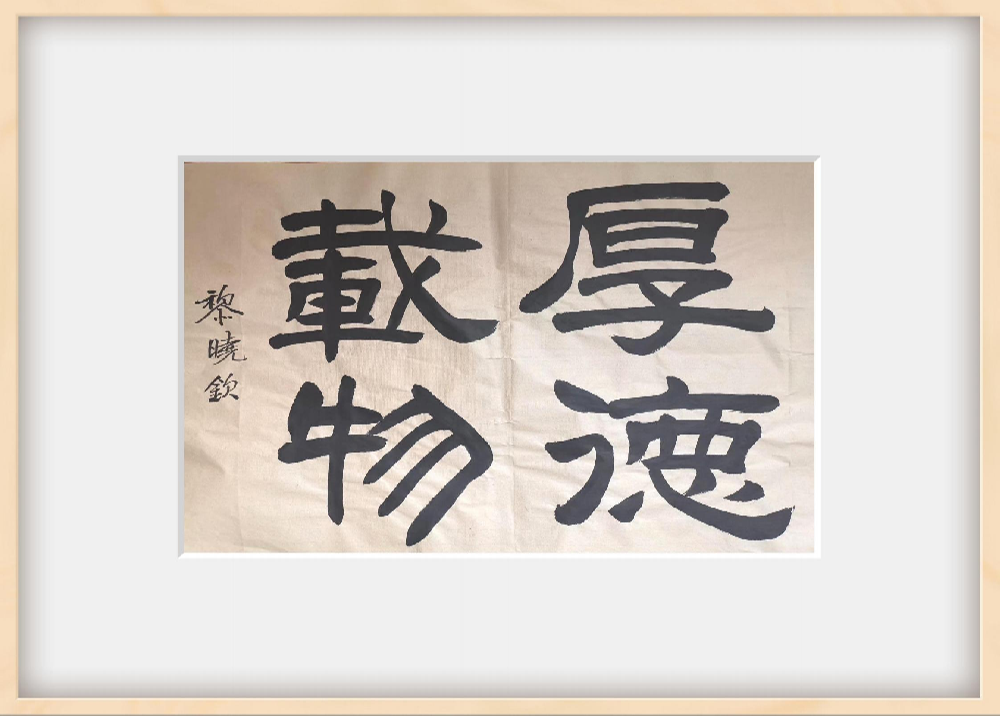 厚德
載物
黎曉欽